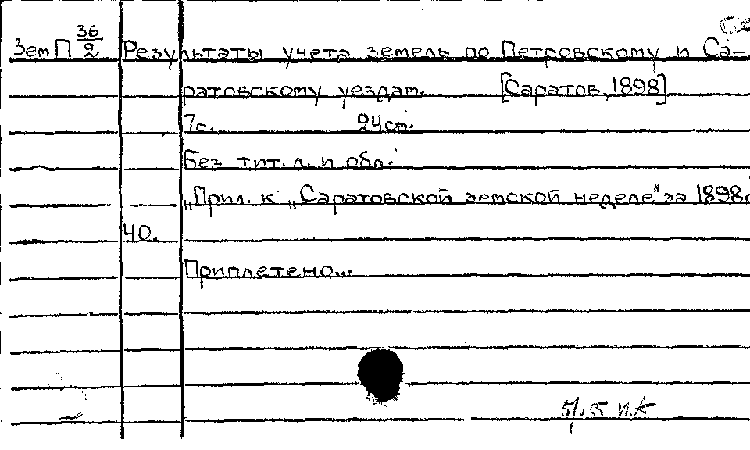 Зем П 36/2 Результаты учета земель по Петровскому и Са-
ратовскому уездам. [Саратов, 1898]
7с. 24см.
Без тит. л. и обл.
„Прил. к „Саратовской земской неделе" за 1898.
40.
Приплетено...